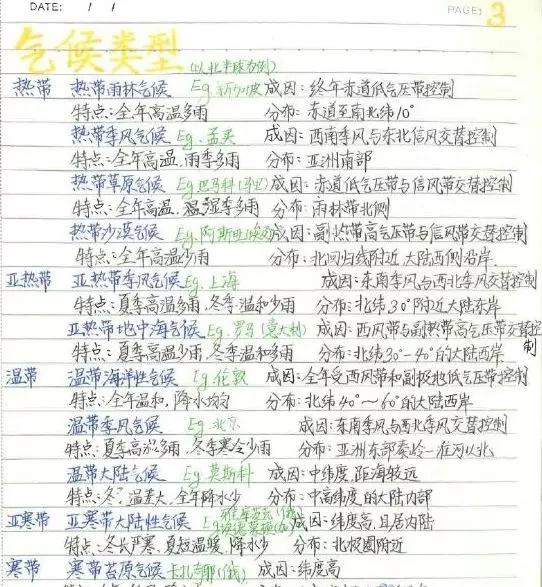 DATE: / / PAGE: 3
气候类型 (以北半球为例)
热带 热带雨林气候 Eg.新加坡 成因:终年赤道低气压带控制
特点:全年高温多雨 分布:赤道至南北纬10°
热带季风气候 Eg.孟买 成因:西南季风与东北信风交替控制
特点:全年高温,雨季多雨 分布:亚洲南部
热带草原气候 Eg.巴马科(马里) 成因:赤道低气压带与信风带交替控制
特点:全年高温,湿季多雨 分布:雨林带北侧
热带沙漠气候 Eg.阿斯旺(埃及) 成因:副热带高气压带与信风带交替控制
特点:全年高温少雨 分布:北回归线附近大陆西侧沿岸
亚热带 亚热带季风气候 Eg.上海 成因:东南季风与西北季风交替控制
特点:夏季高温多雨,冬季温和少雨 分布:北纬30°附近大陆东岸
亚热带地中海气候 Eg.罗马(意大利) 成因:西风带与副热带高气压带交替控制
特点:夏季高温少雨,冬季温和多雨 分布:北纬30°-40°的大陆西岸
温带 温带海洋性气候 Eg.伦敦 成因:全年受西风带和副极地低气压带控制
特点:全年温和,降水均匀 分布:北纬40°~60°的大陆西岸
温带季风气候 Eg.北京 成因:东南季风与西北季风交替控制
特点:夏季高温多雨,冬季寒冷少雨 分布:亚洲东部秦岭-淮河以北
温带大陆气候 Eg.莫斯科 成因:中纬度,距海较远
特点:冬 温差大,全年降水少 分布:中高纬度的大陆内部
亚寒带 亚寒带大陆性气候 成因:纬度高,且居内陆
特点:冬长严寒,夏短温暖,降水少 分布:北极圈附近
寒带 寒带苔原气候 (俄) 成因:纬度高